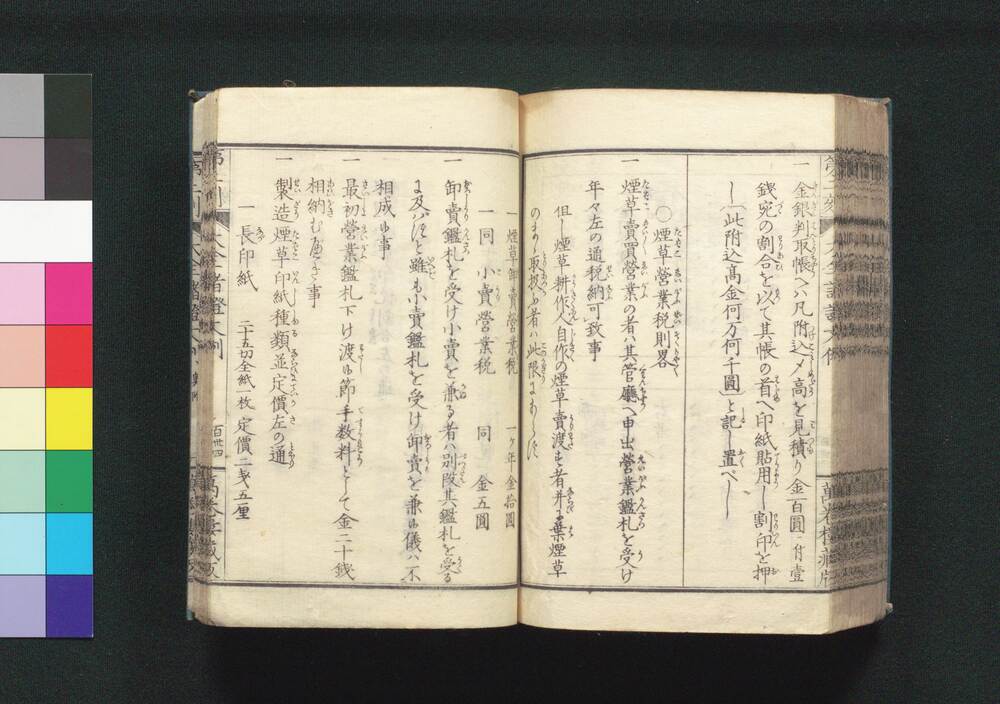 一 金銀判取帳ヘハ凡附込〆高を見積り金百圓ニ付壹
錢宛の割合を以て其帳の首へ印紙貼用し割印を押
し「此附込高金何万何千圓」と記し置べし
○煙草營業税則畧
一 煙草賣買營業の者ハ其管廳ヘ申出營業鑑札を受け
年々左の通税納可致事
但し煙草耕作人自作の煙草賣渡す者并に葉煙草
のまゝ取扱ふ者ハ此限にあらず
一 煙草卸賣營業税 一ヶ年金拾圓
一 同 小賣營業税 同 金五圓
一 卸賣鑑札を受け小賣を兼る者ハ別段其鑑札を受る
に及ハずと雖も小賣鑑札を受け卸賣を兼ゆ儀ハ不
相成ゆ事
一 最初營業鑑札下け渡ゆ節手数料として金二十錢
相納む
一 製造煙草印紙種類並定價左の通
一 長印紙 二十五切全紙一枚 定價二錢五厘
百卅四
萬卷樓藏版